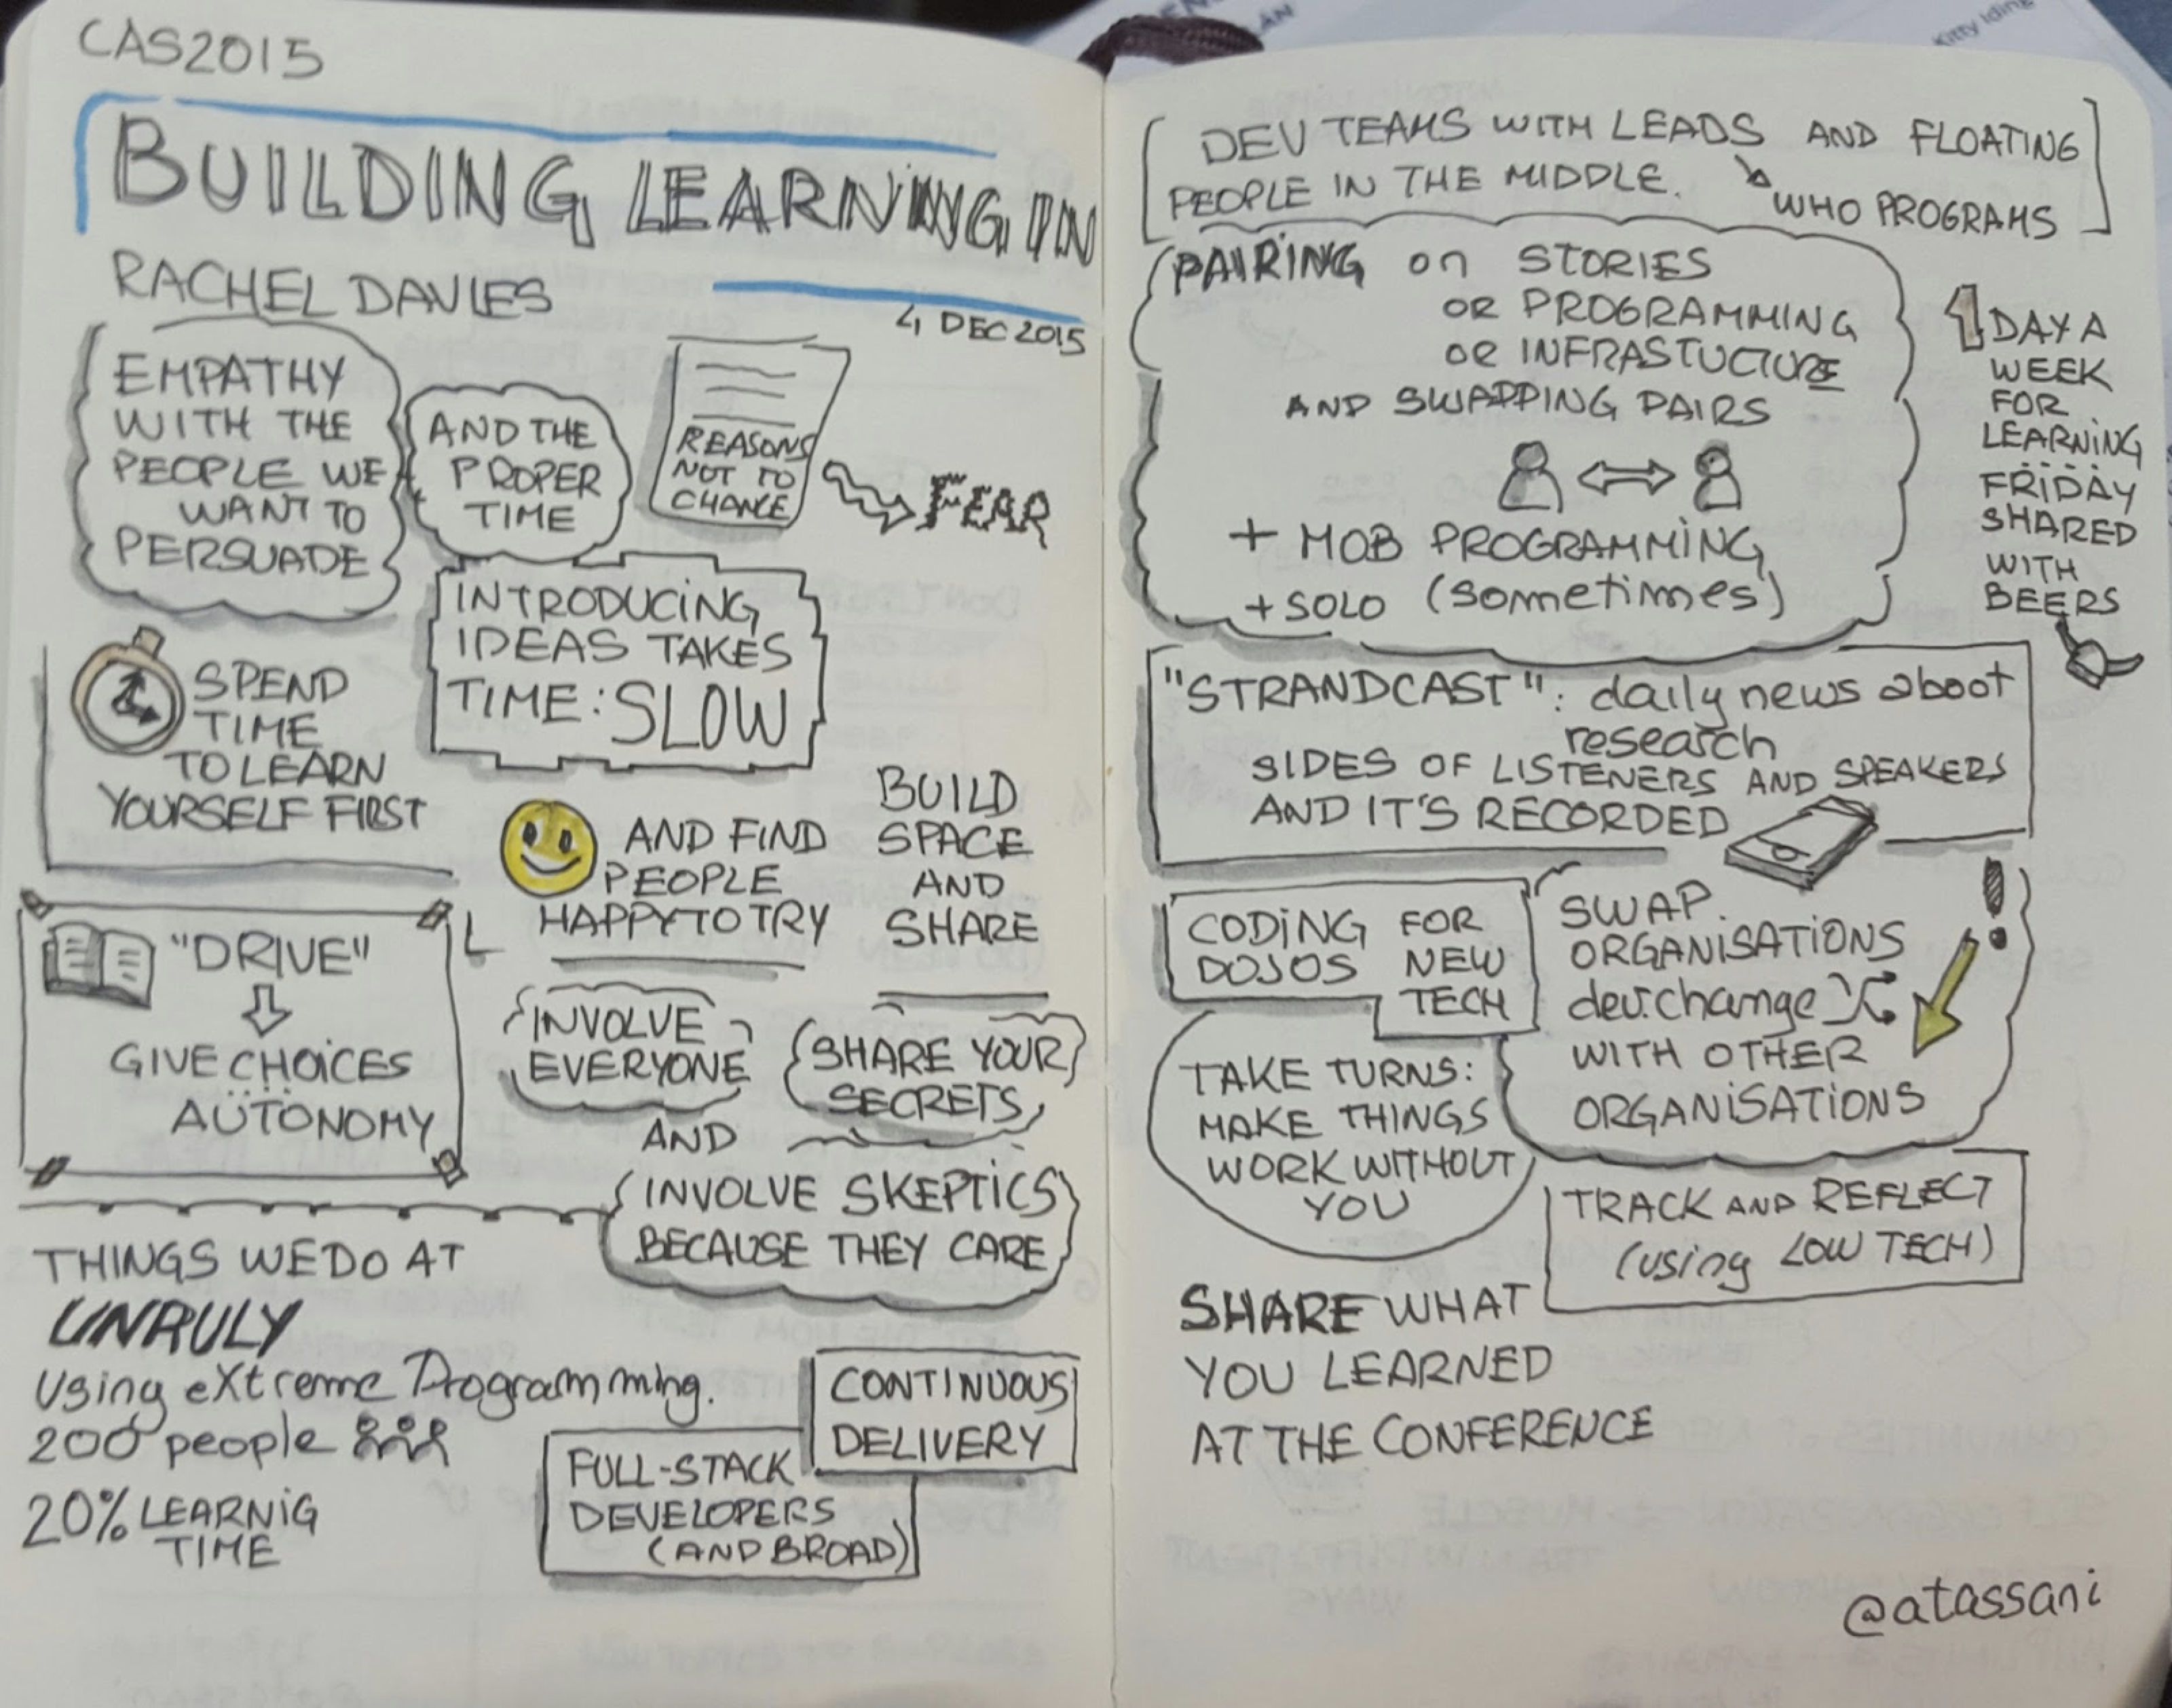 CAS2015
BUILDING LEARNING IN
RACHEL DAVIES
4 DEC 2015
EMPATHY
WITH THE
PEOPLE WE
WANT TO
PERSUADE
AND THE
PROPER
TIME
REASONS
NOT TO
CHANGE
FEAR
INTRODUCING
IDEAS TAKES
TIME: SLOW
SPEND
TIME
TO LEARN
YOURSELF FIRST
AND FIND
PEOPLE
HAPPY TO TRY
BUILD
SPACE
AND
SHARE
"DRIVE"
GIVE CHOICES
AUTONOMY
INVOLVE
EVERYONE
SHARE YOUR
SECRETS
AND
INVOLVE SKEPTICS
BECAUSE THEY CARE
THINGS WE DO AT
UNRULY
Using eXtreme Programming.
200 people
20% LEARNIG
TIME
CONTINUOUS
DELIVERY
FULL-STACK
DEVELOPERS
(AND BROAD)
DEV TEAMS WITH LEADS AND FLOATING
PEOPLE IN THE MIDDLE.
WHO PROGRAMS
PAIRING on STORIES
OR PROGRAMMING
OR INFRASTUCTURE
AND SWAPPING PAIRS
+ MOB PROGRAMMING
+ SOLO (sometimes)
1 DAY A
WEEK
FOR
LEARNING
FRIDAY
SHARED
WITH
BEERS
"STRANDCAST": daily news aboot
research
SIDES OF LISTENERS AND SPEAKERS
AND IT'S RECORDED
CODING FOR
DOJOS NEW
TECH
SWAP
ORGANISATIONS
dev:change
WITH OTHER
ORGANISATIONS
!
TAKE TURNS:
MAKE THINGS
WORK WITHOUT
YOU
TRACK AND REFLECT
(using LOW TECH)
SHARE WHAT
YOU LEARNED
AT THE CONFERENCE
@atassani
Kitty Iding